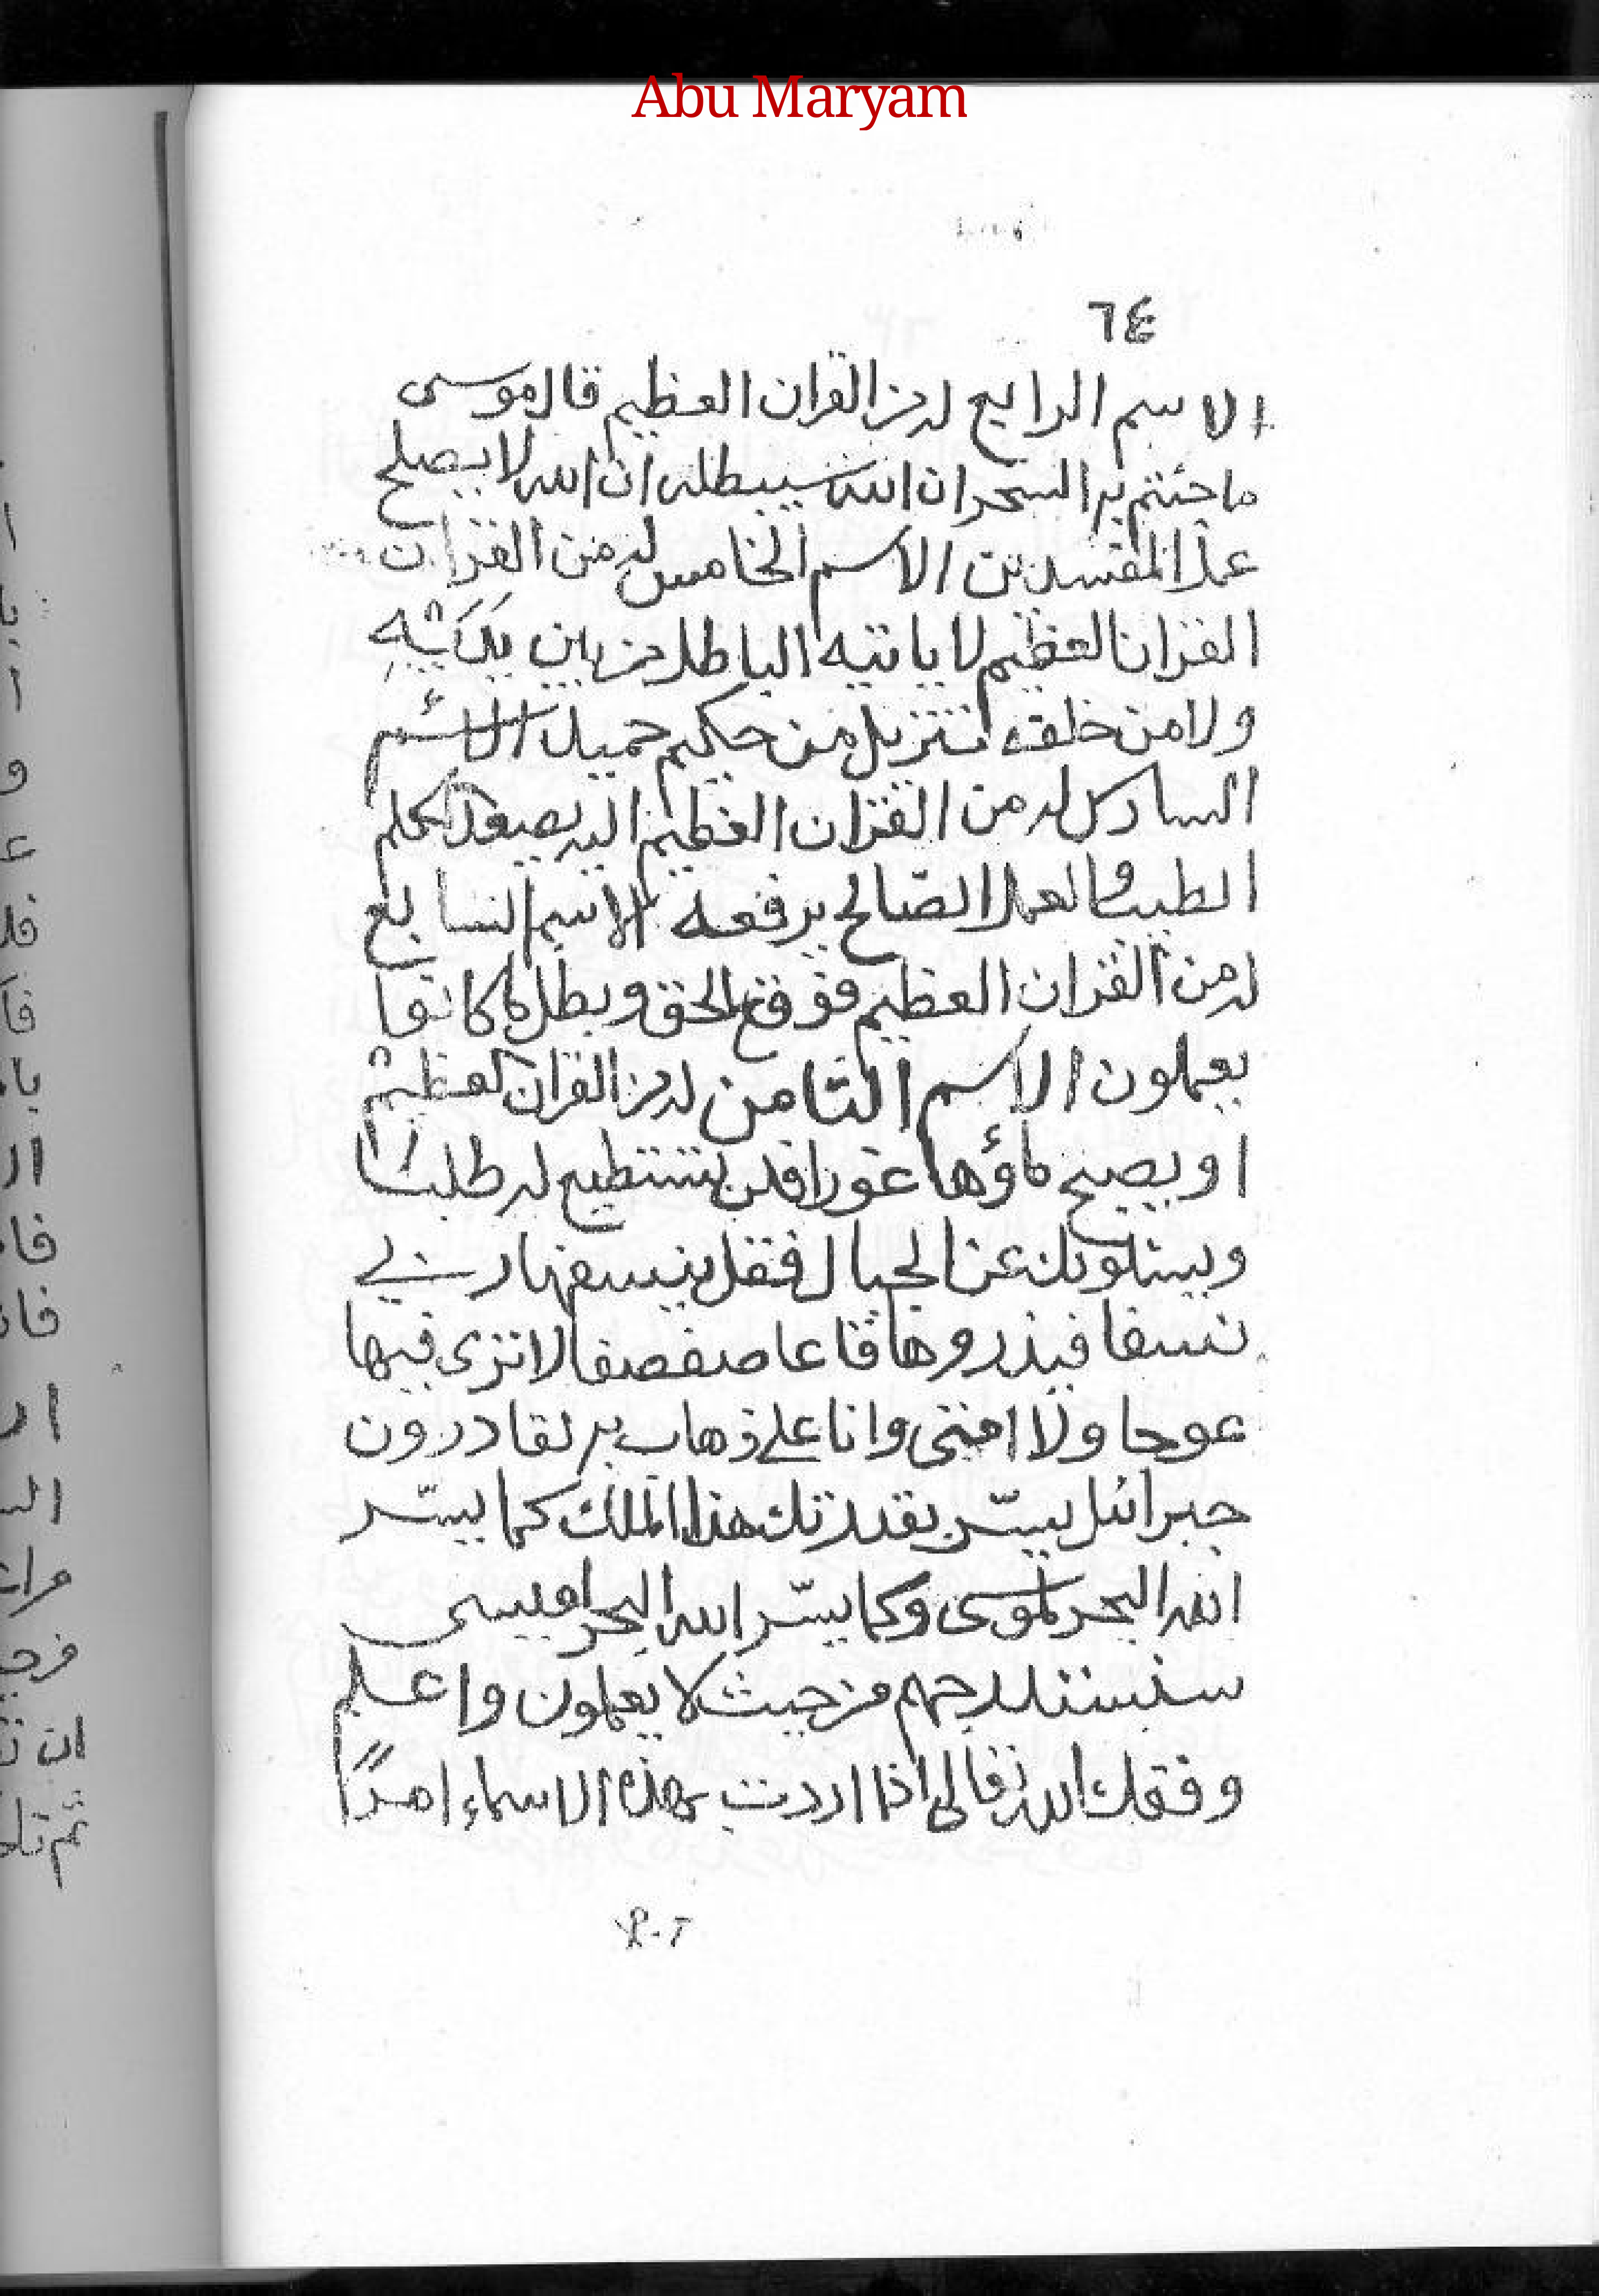 Abu Maryam
٦٤
الاسم الرابع له من القران العظيم قال موسى
ما جئتم به السحر ان الله سيبطله ان الله لا يصلح
عمل المفسدين الاسم الخامس له من القران
القران العظيم لا ياتيه الباطل من بين يديه
ولا من خلفه تنزيل من حكيم حميد الاسم
السادس له من القران العظيم اليه يصعد الكلم
الطيب والعمل الصالح يرفعه الاسم السابع
له من القران العظيم فوقع الحق وبطل ما كانوا
يعملون الاسم الثامن له من القران العظيم
او يصبح ماؤها غورا فلن تستطيع له طلبا
ويسئلونك عن الجبال فقل ينسفها ربي
نسفا فيذروها قاعا صفصفا لا ترى فيها
عوجا ولا امتى وانا على ذهاب به لقادرون
جبرائيل يسّر بقدرتك هذا الملك كما يسّر
الله البحر لموسى وكما يسّر الله البحر لعيسى
سنستدرجهم من حيث لا يعلمون واعلم
وفقك الله تعالى اذا اردت بهذه الاسماء امرًا